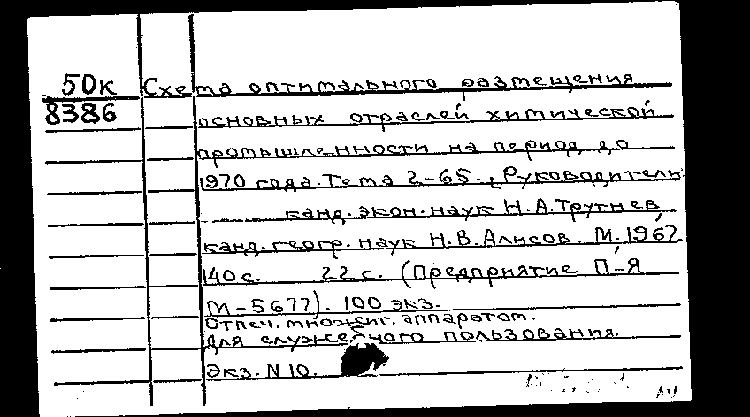 50к Схема оптимального размещения
8386 основных отраслей химической
промышленности на период до
1970 года. Тема 2-65., Руководитель
канд. экон. наук Н.А.Трутнев,
канд. геогр. наук Н.В.Алисов. М., 1967
140 с. 22 с. (Предприятие П-Я
М-5677). 100 экз.
Отпеч. множит. аппаратом.
Для служебного пользования.
Экз. N 10.